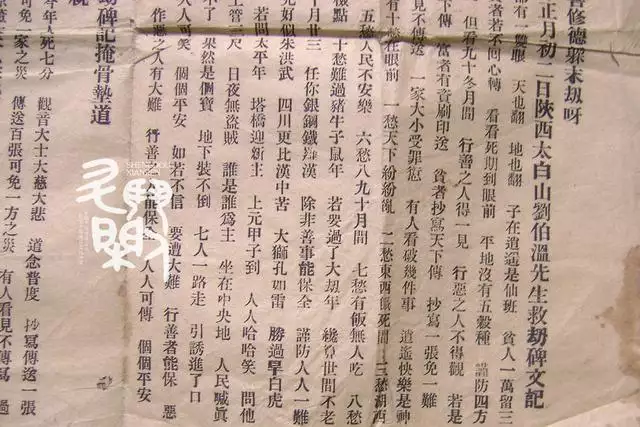 善修德躲末劫呀
正月初二日陝西太白山劉伯溫先生救劫碑文記
都有一雙眼 天也翻 地也翻 子在逍遙是仙班 貧人一萬留三
者若不同心轉 看看死期到眼前 平地沒有五穀種 謹防四方
但看九十冬月間 行善之人得一見 行惡之人不得觀 若是
下傳 富者有資刷印送 貧者抄寫天下傳 抄寫一張免一難
見不傳送 一家大小受罪愆 有人看破幾件事 逍遙快樂是神
有十愁在眼前 一愁天下紛紛亂 二愁東西餓死間 三愁湖西
五愁人民不安樂 六愁八九十月間 七愁有飯無人吃 八愁
檢點 十愁難過豬牛子鼠年 若要過了大刼年 纔算世間不老
十月廿三 任你銀鋼鐵羅漢 除非善事能保全 謹防人人一難
元好似朱洪武 四川更比漢中苦 大獅孔如雷 勝過旱白虎
若問太平年 塔橋迎新主 上元甲子到 人人哈哈笑 問他
上管三尺 日夜無盜賊 誰是誰為主 坐在中央地 人民喊真
不了 果然是個寶 地下裝不倒 七人一路走 引誘進了口
人人可笑 個個平安 如若不信 要遭大難 行善者能保 惡
作惡之人有大難 行善 人能保 人人可傳 個個平安
劫碑記掩骨墊道
年人死七分 觀音大士大慈大悲 道念普度 抄寫傳送一張
可免一家之災 傳送百張可免一方之災 有人看見不傳寫 過